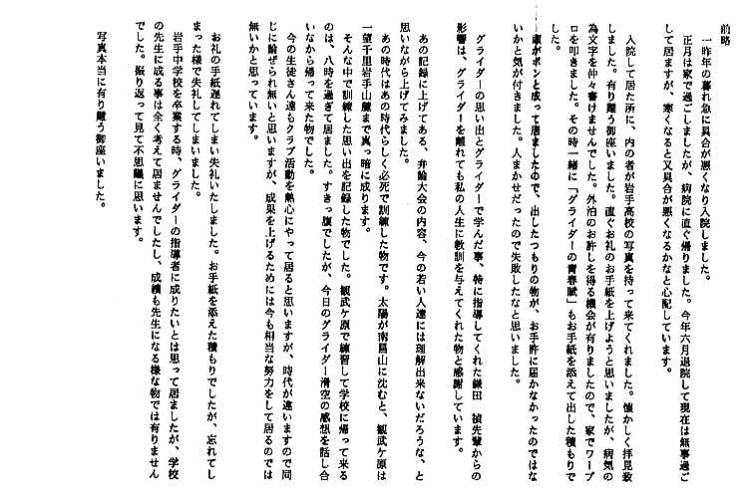 前略
一昨年の暮れ急に具合が悪くなり入院しました。
正月は家で過ごしましたが、病院に直ぐ帰りました。今年六月退院して現在は無事過ご
して居ますが、寒くなると又具合が悪くなるかなと心配しています。
入院して居た所に、内の者が岩手高校の写真を持って来てくれました。懐かしく拝見致
しました。有り難う御座いました。直ぐお礼のお手紙を上げようと思いましたが、病気の
為文字を仲々書けませんでした。外泊のお許しを得る機会が有りましたので、家でワープ
ロを叩きました。その時一緒に「グライダーの青春賦」もお手紙を添えて出した積もりで
した。
虚がポンと成って居ましたので、出したつもりの物が、お手許に届かなかったのではな
いかと気が付きました。人まかせだったので失敗したなと思いました。
グライダーの思い出とグライダーで学んだ事、特に指導してくれた鎌田 禎先輩からの
影響は、グライダーを離れても私の人生に教訓を与えてくれた物と感謝しています。
あの記録に上げてある、弁論大会の内容、今の若い人達には理解出来ないだろうな、と
思いながら上げてみました。
あの時代はあの時代らしく必死で訓練した物です。太陽が南昌山に沈むと、観武ケ原は
一望千里岩手山麓まで真っ暗に成ります。
そんな中で訓練した思い出を記録した物でした。観武ケ原で練習して学校に帰って来る
のは、八時を過ぎて居ました。すきっ腹でしたが、今日のグライダー滑空の感想を話し合
いなから帰って来た物でした。
今の生徒さん達もクラブ活動を熱心にやって居ると思いますが、時代が違いますので同
じに論ぜられ無いと思いますが、成果を上げるためには今も相当な努力をして居るのでは
無いかと思っています。
お礼の手紙遅れてしまい失礼いたしました。お手紙を添えた積もりでしたが、忘れてし
まった様で失礼してしまいました。
岩手中学校を卒業する時、グライダーの指導者に成りたいとは思って居ましたが、学校
の先生に成る事は全く考えて居ませんでしたし、成績も先生になる様な物では有りません
でした。振り返って見て不思議に思います。
写真本当に有り難う御座いました。